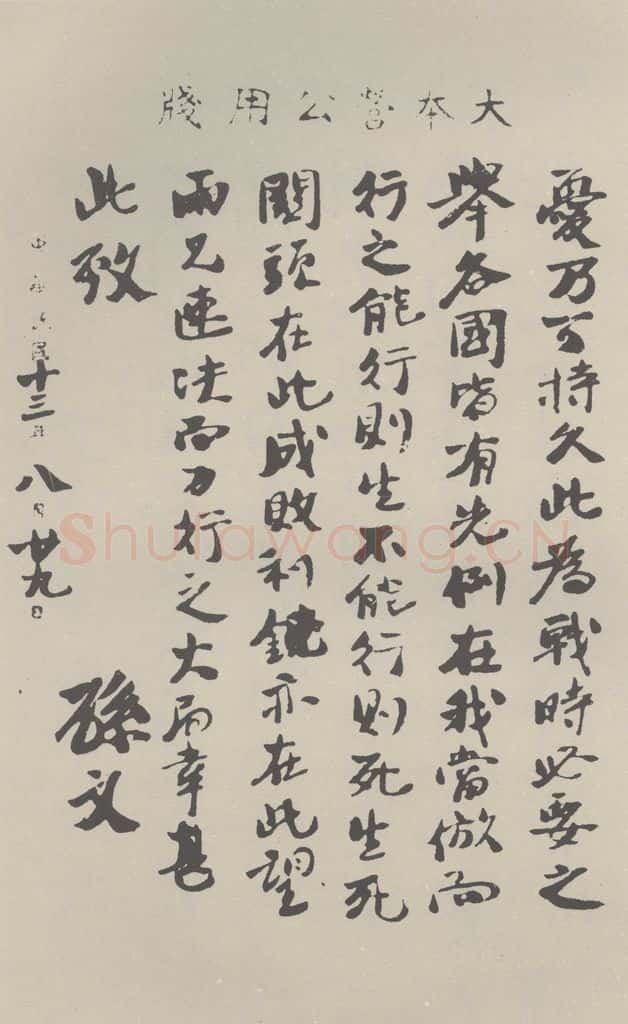 大本營公用牋
憂乃可持久此為戰時必要之
舉各國皆有先例在我當倣而
行之能行則生不能行則死生死
關頭在此成敗利鈍亦在此望
兩兄速決而力行之大局幸甚
此致
孫文
中華民國十三年八月廿九日
Shufawang.CN